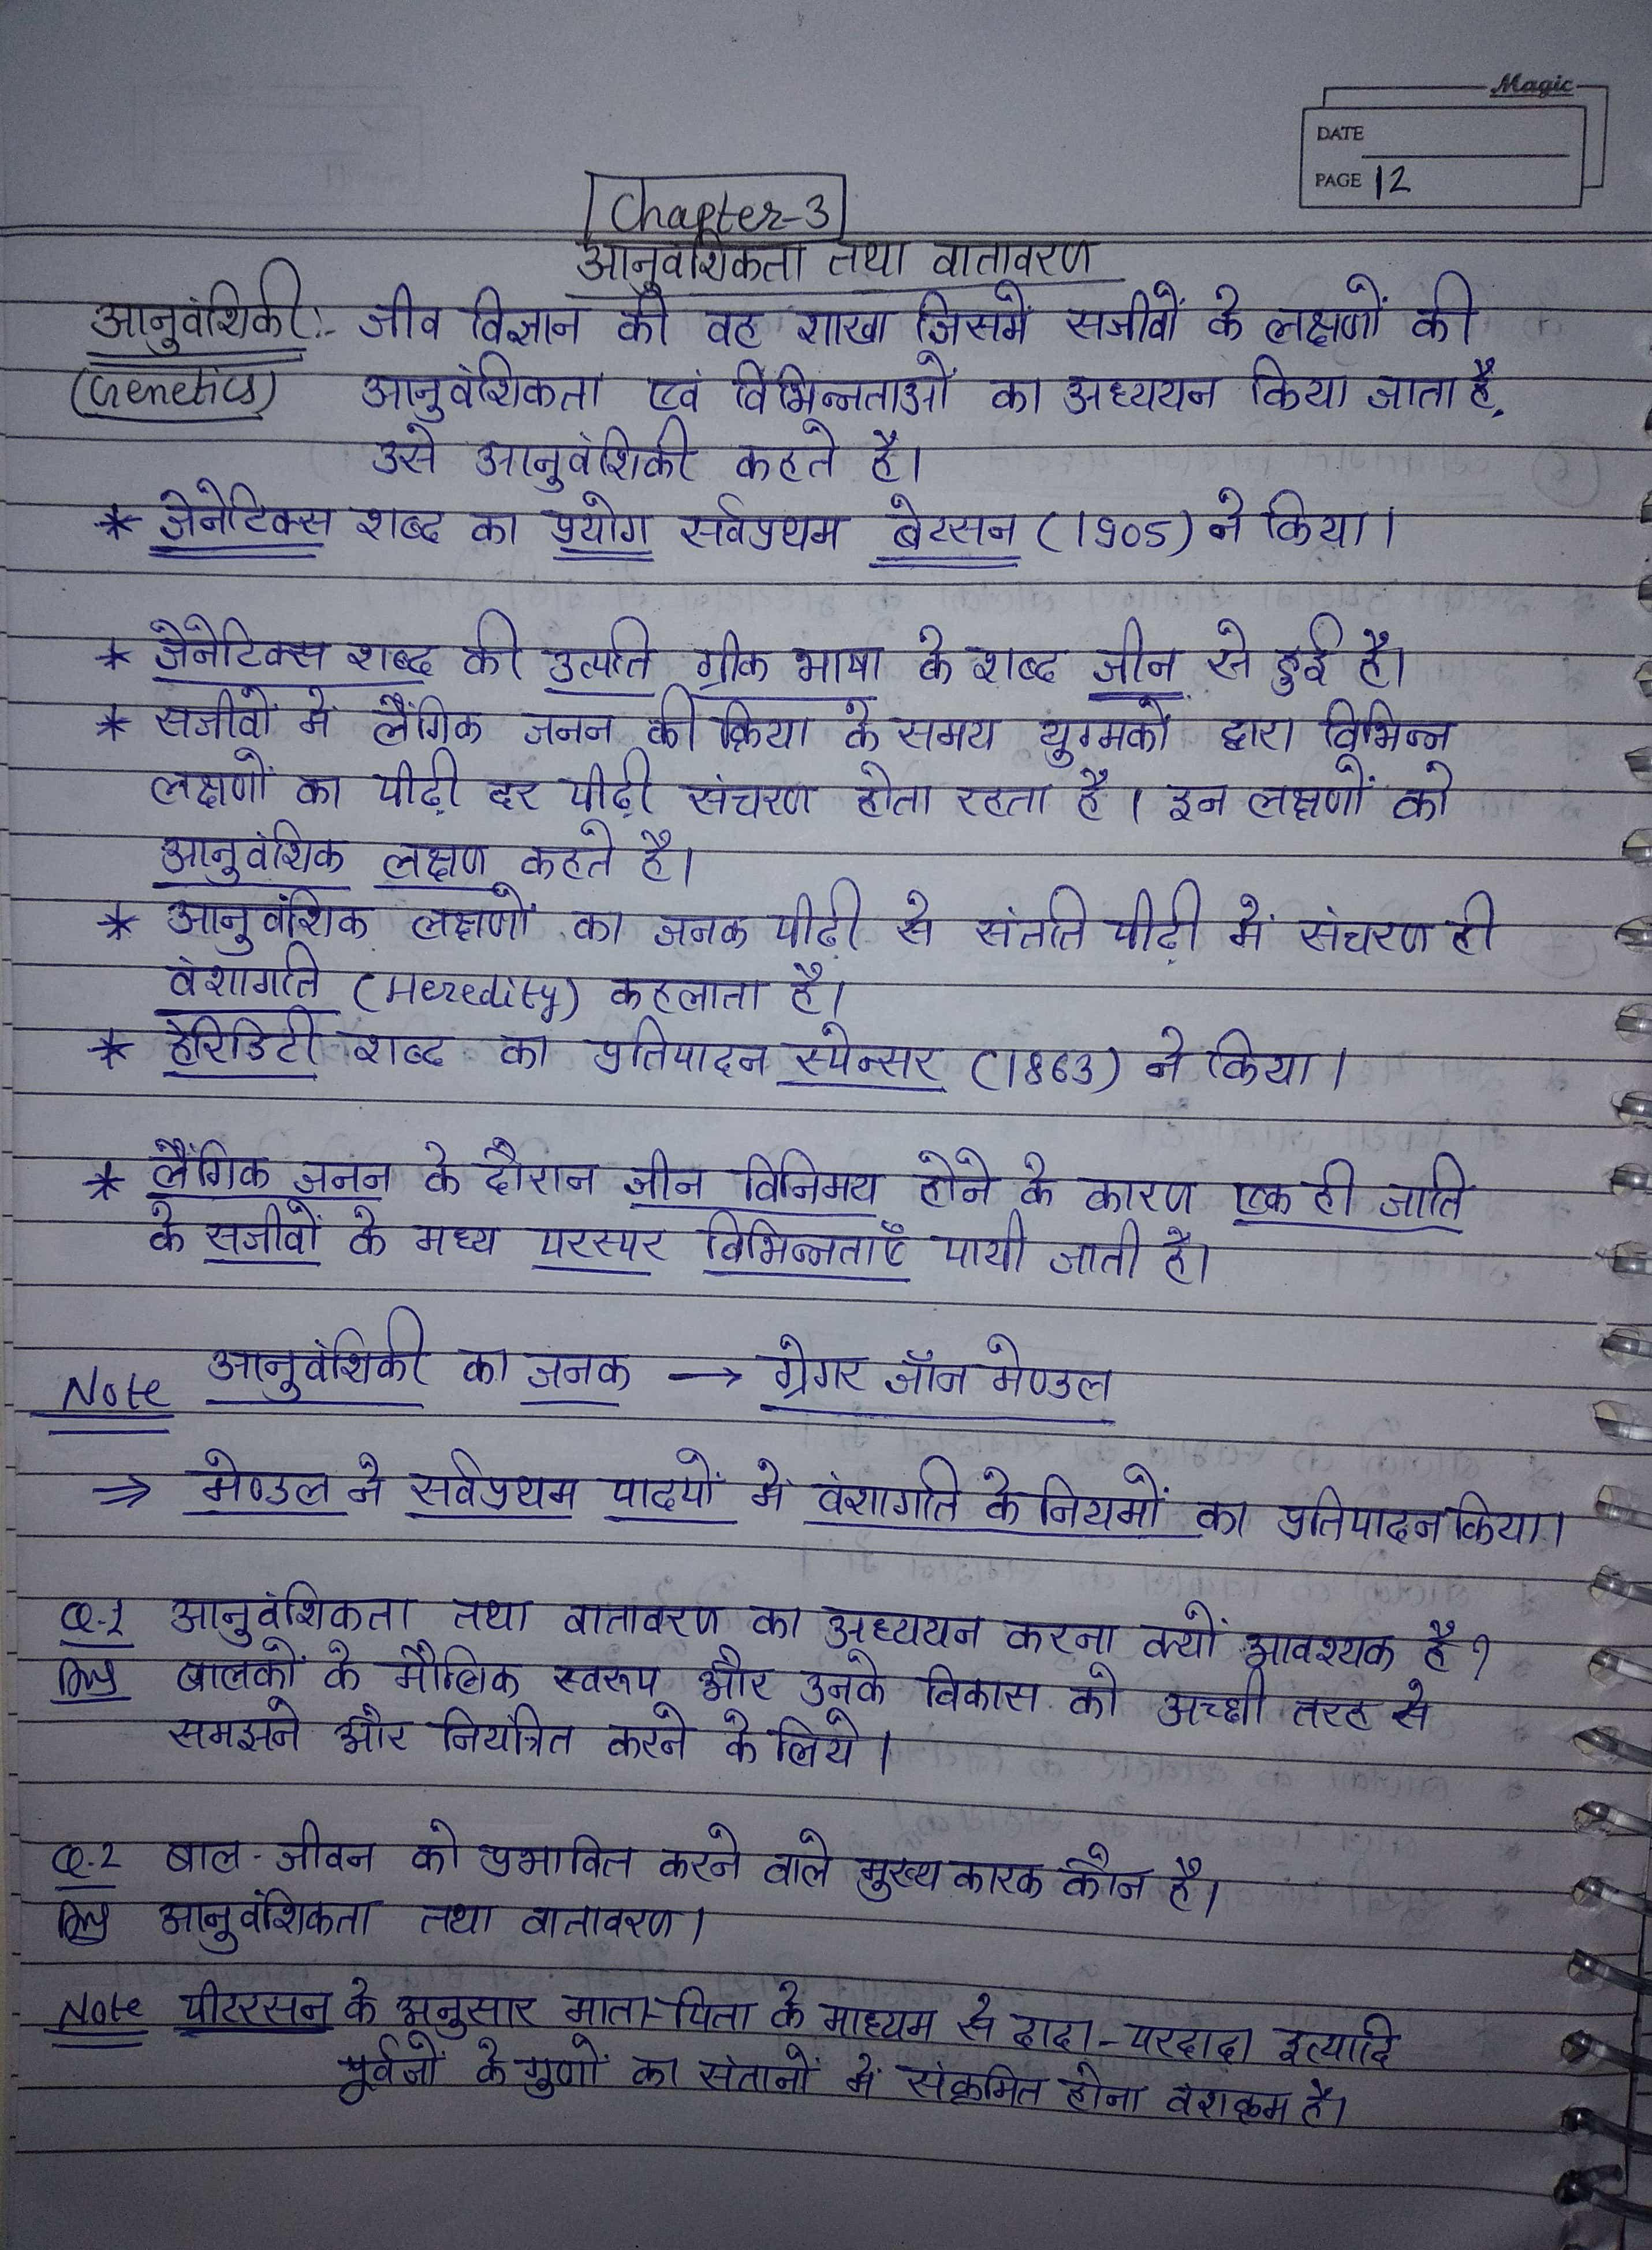 Magic
DATE
PAGE 12
Chapter-3
आनुवंशिकता तथा वातावरण
आनुवंशिकी:- जीव विज्ञान की वह शाखा जिसमें सजीवों के लक्षणों की
(Genetics) आनुवंशिकता एवं विभिन्नताओं का अध्ययन किया जाता है,
उसे आनुवंशिकी कहते है।
* जेनेटिक्स शब्द का प्रयोग सर्वप्रथम बेटसन (1905) ने किया।
* जेनेटिक्स शब्द की उत्पत्ति ग्रीक भाषा के शब्द जीन से हुई है।
* सजीवों में लैंगिक जनन की क्रिया के समय युग्मकों द्वारा विभिन्न
लक्षणों का पीढ़ी दर पीढ़ी संचरण होता रहता है। इन लक्षणों को
आनुवंशिक लक्षण कहते है।
* आनुवंशिक लक्षणों का जनक पीढ़ी से संतति पीढ़ी में संचरण ही
वंशागति (Heredity) कहलाता है।
* हेरिडिटी शब्द का प्रतिपादन स्पेन्सर (1863) ने किया।
* लैंगिक जनन के दौरान जीन विनिमय होने के कारण एक ही जाति
के सजीवों के मध्य परस्पर विभिन्नताएँ पायी जाती है।
Note आनुवंशिकी का जनक → ग्रेगर जॉन मेण्डल
⇒ मेण्डल ने सर्वप्रथम पादपों में वंशागति के नियमों का प्रतिपादन किया।
Q.1 आनुवंशिकता तथा वातावरण का अध्ययन करना क्यों आवश्यक है?
Ans बालकों के मौलिक स्वरूप और उनके विकास को अच्छी तरह से
समझने और नियंत्रित करने के लिये।
Q.2 बाल-जीवन को प्रभावित करने वाले मुख्य कारक कौन है।
Ans आनुवंशिकता तथा वातावरण।
Note पीटरसन के अनुसार माता-पिता के माध्यम से दादा-परदादा इत्यादि
पूर्वजों के गुणों का संतानों में संक्रमित होना वंशक्रम है।